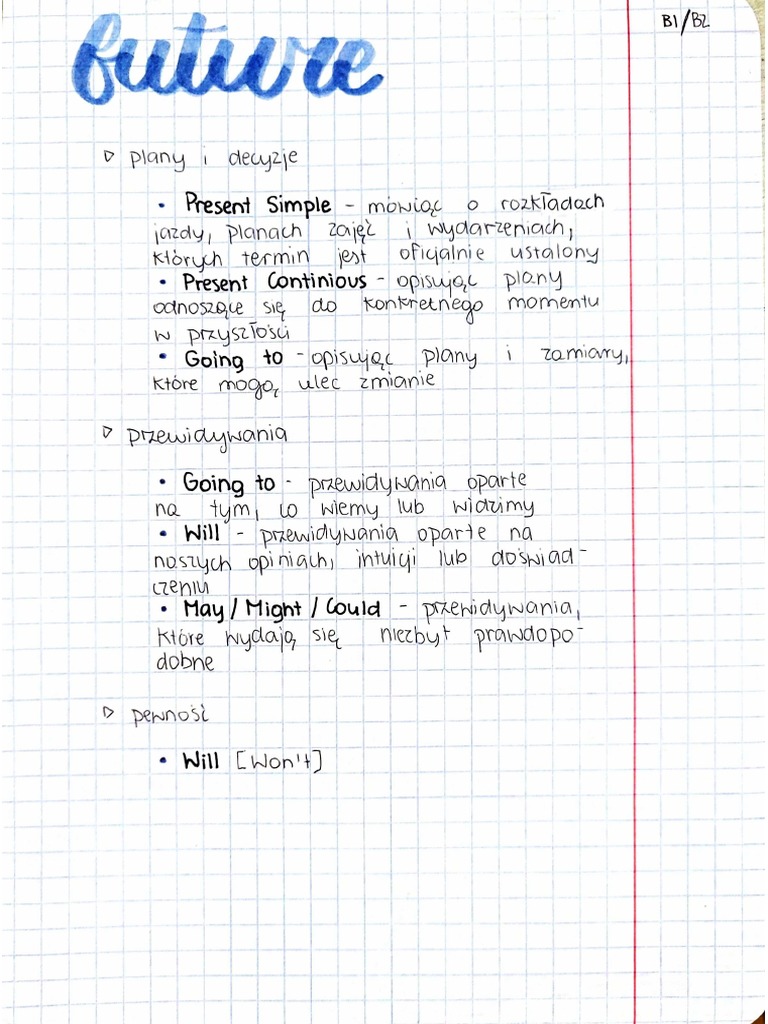 B1/B2
future
▷ plany i decyzje
• Present Simple - mówiąc o rozkładach
jazdy, planach zajęć i wydarzeniach,
których termin jest oficjalnie ustalony
• Present Continious - opisując plany
odnoszące się do konkretnego momentu
w przyszłości
• Going to - opisując plany i zamiary,
które mogą ulec zmianie
▷ przewidywania
• Going to - przewidywania oparte
na tym, co wiemy lub widzimy
• Will - przewidywania oparte na
naszych opiniach, intuicji lub doświad-
czeniu
• May / Might / Could - przewidywania,
które wydają się niezbyt prawdopo-
dobne
▷ pewność
• Will [Won't]